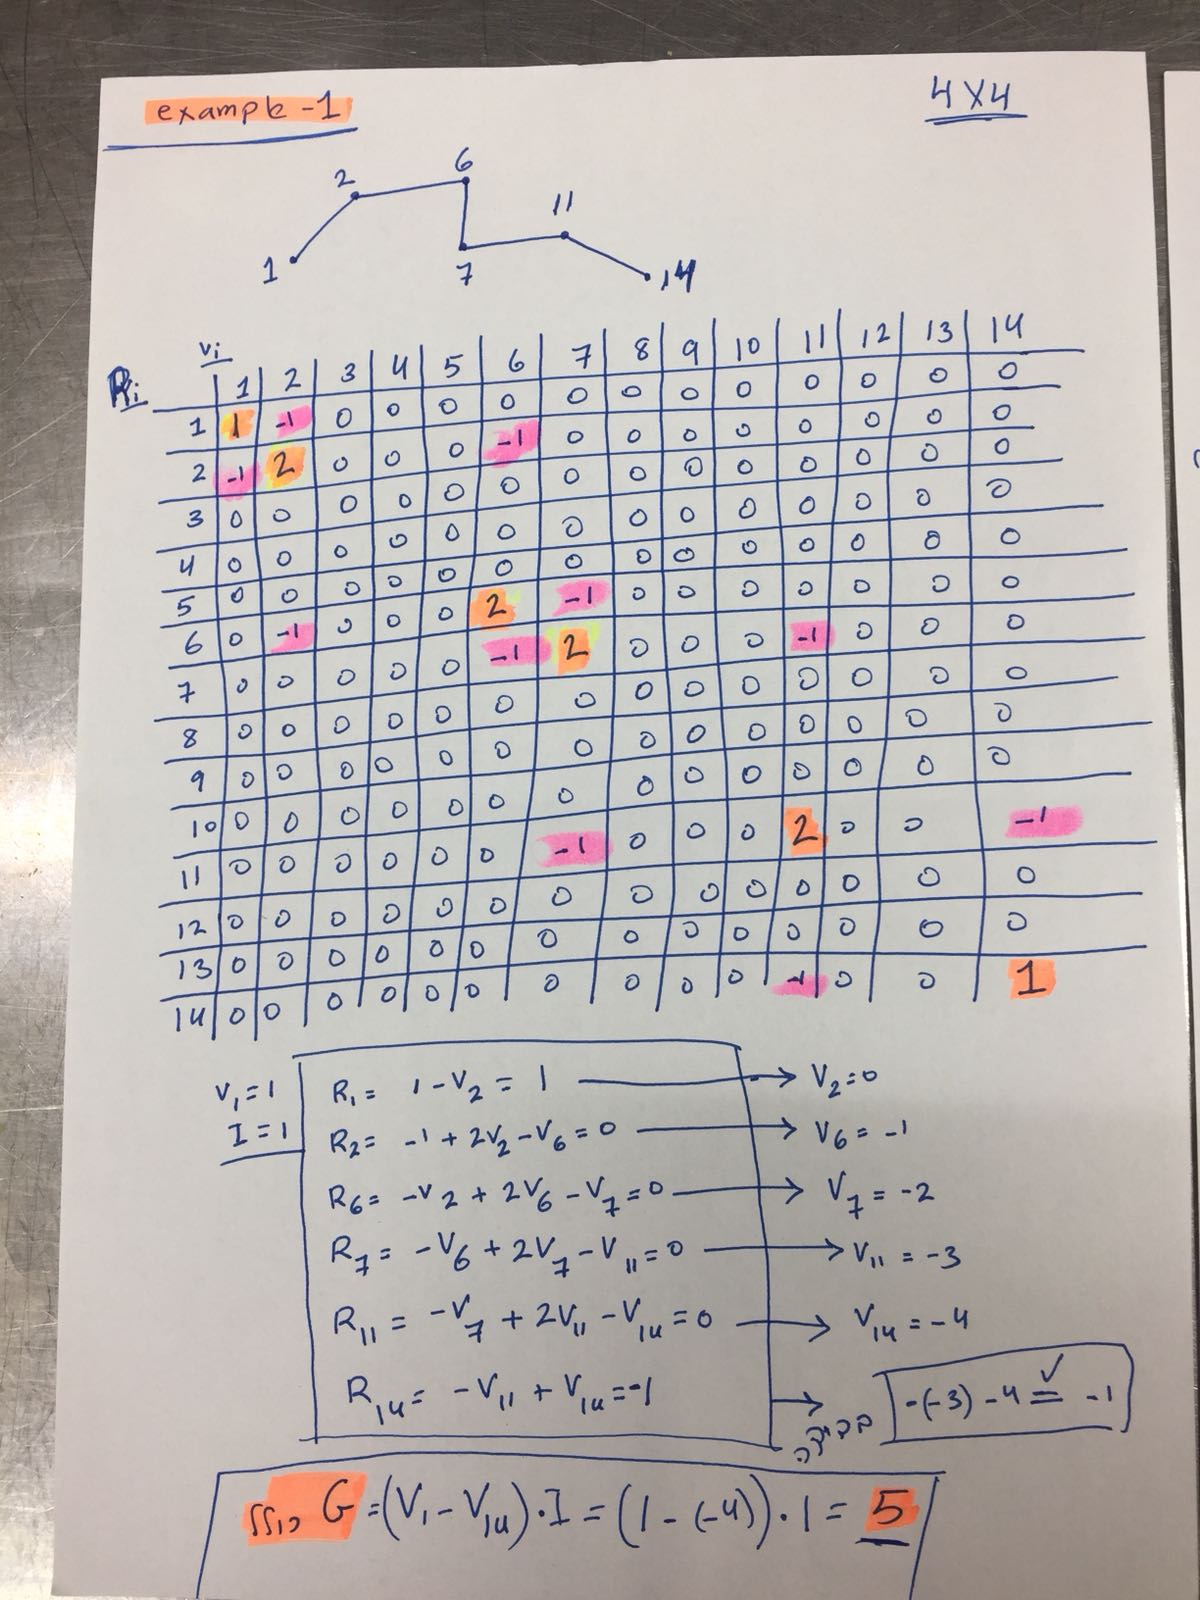 example -1
4x4
2 6 11
1 7 14
Vi
Ri
1 2 3 4 5 6 7 8 9 10 11 12 13 14
1 1 -1 0 0 0 0 0 0 0 0 0 0 0 0
2 -1 2 0 0 0 -1 0 0 0 0 0 0 0 0
3 0 0 0 0 0 0 0 0 0 0 0 0 0 0
4 0 0 0 0 0 0 0 0 0 0 0 0 0 0
5 0 0 0 0 0 0 0 0 0 0 0 0 0 0
6 0 -1 0 0 0 2 -1 0 0 0 0 0 0 0
7 0 0 0 0 0 -1 2 0 0 0 -1 0 0 0
8 0 0 0 0 0 0 0 0 0 0 0 0 0 0
9 0 0 0 0 0 0 0 0 0 0 0 0 0 0
10 0 0 0 0 0 0 0 0 0 0 0 0 0 0
11 0 0 0 0 0 0 -1 0 0 0 2 0 0 -1
12 0 0 0 0 0 0 0 0 0 0 0 0 0 0
13 0 0 0 0 0 0 0 0 0 0 0 0 0 0
14 0 0 0 0 0 0 0 0 0 0 -1 0 0 1
V₁=1 R₁= 1-V₂= 1 → V₂=0
I=1 R₂= -1+2V₂-V₆=0 → V₆= -1
R₆= -V₂+2V₆-V₇=0 → V₇=-2
R₇= -V₆+2V₇-V₁₁=0 → V₁₁=-3
R₁₁= -V₇+2V₁₁-V₁₄=0 → V₁₄=-4
R₁₄= -V₁₁+V₁₄=-1 → בדיקה -(-3)-4 = -1 ✓
G=(V₁-V₁₄)·I=(1-(-4))·1= 5